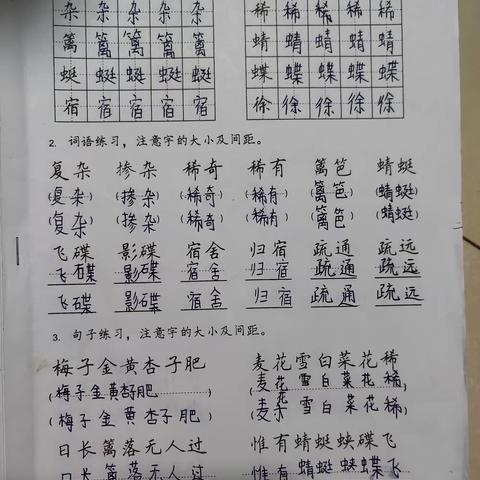 杂 杂 杂 杂 杂 稀 稀 稀 稀 稀
篱 篱 篱 篱 篱 蜻 蜻 蜻 蜻 蜻
蜓 蜓 蜓 蜓 蜓 蝶 蝶 蝶 蝶 蝶
宿 宿 宿 宿 宿 徐 徐 徐 徐 徐
2. 词语练习，注意字的大小及间距。
复杂 掺杂 稀奇 稀有 篱笆 蜻蜓
(复杂) (掺杂) (稀奇) (稀有) (篱笆) (蜻蜓)
(复杂) (掺杂) (稀奇) (稀有) (篱笆) (蜻蜓)
飞碟 影碟 宿舍 归宿 疏通 疏远
飞碟 影碟 宿舍 归宿 疏通 疏远
飞碟 影碟 宿舍 归宿 疏通 疏远
3. 句子练习，注意字的大小及间距。
梅子金黄杏子肥 麦花雪白菜花稀
(梅子金黄杏子肥) (麦花雪白菜花稀)
(梅子金黄杏子肥) (麦花雪白菜花稀)
日长篱落无人过 惟有蜻蜓蛱碟飞
日长篱落无人过 惟有蜻蜓蛱蝶飞